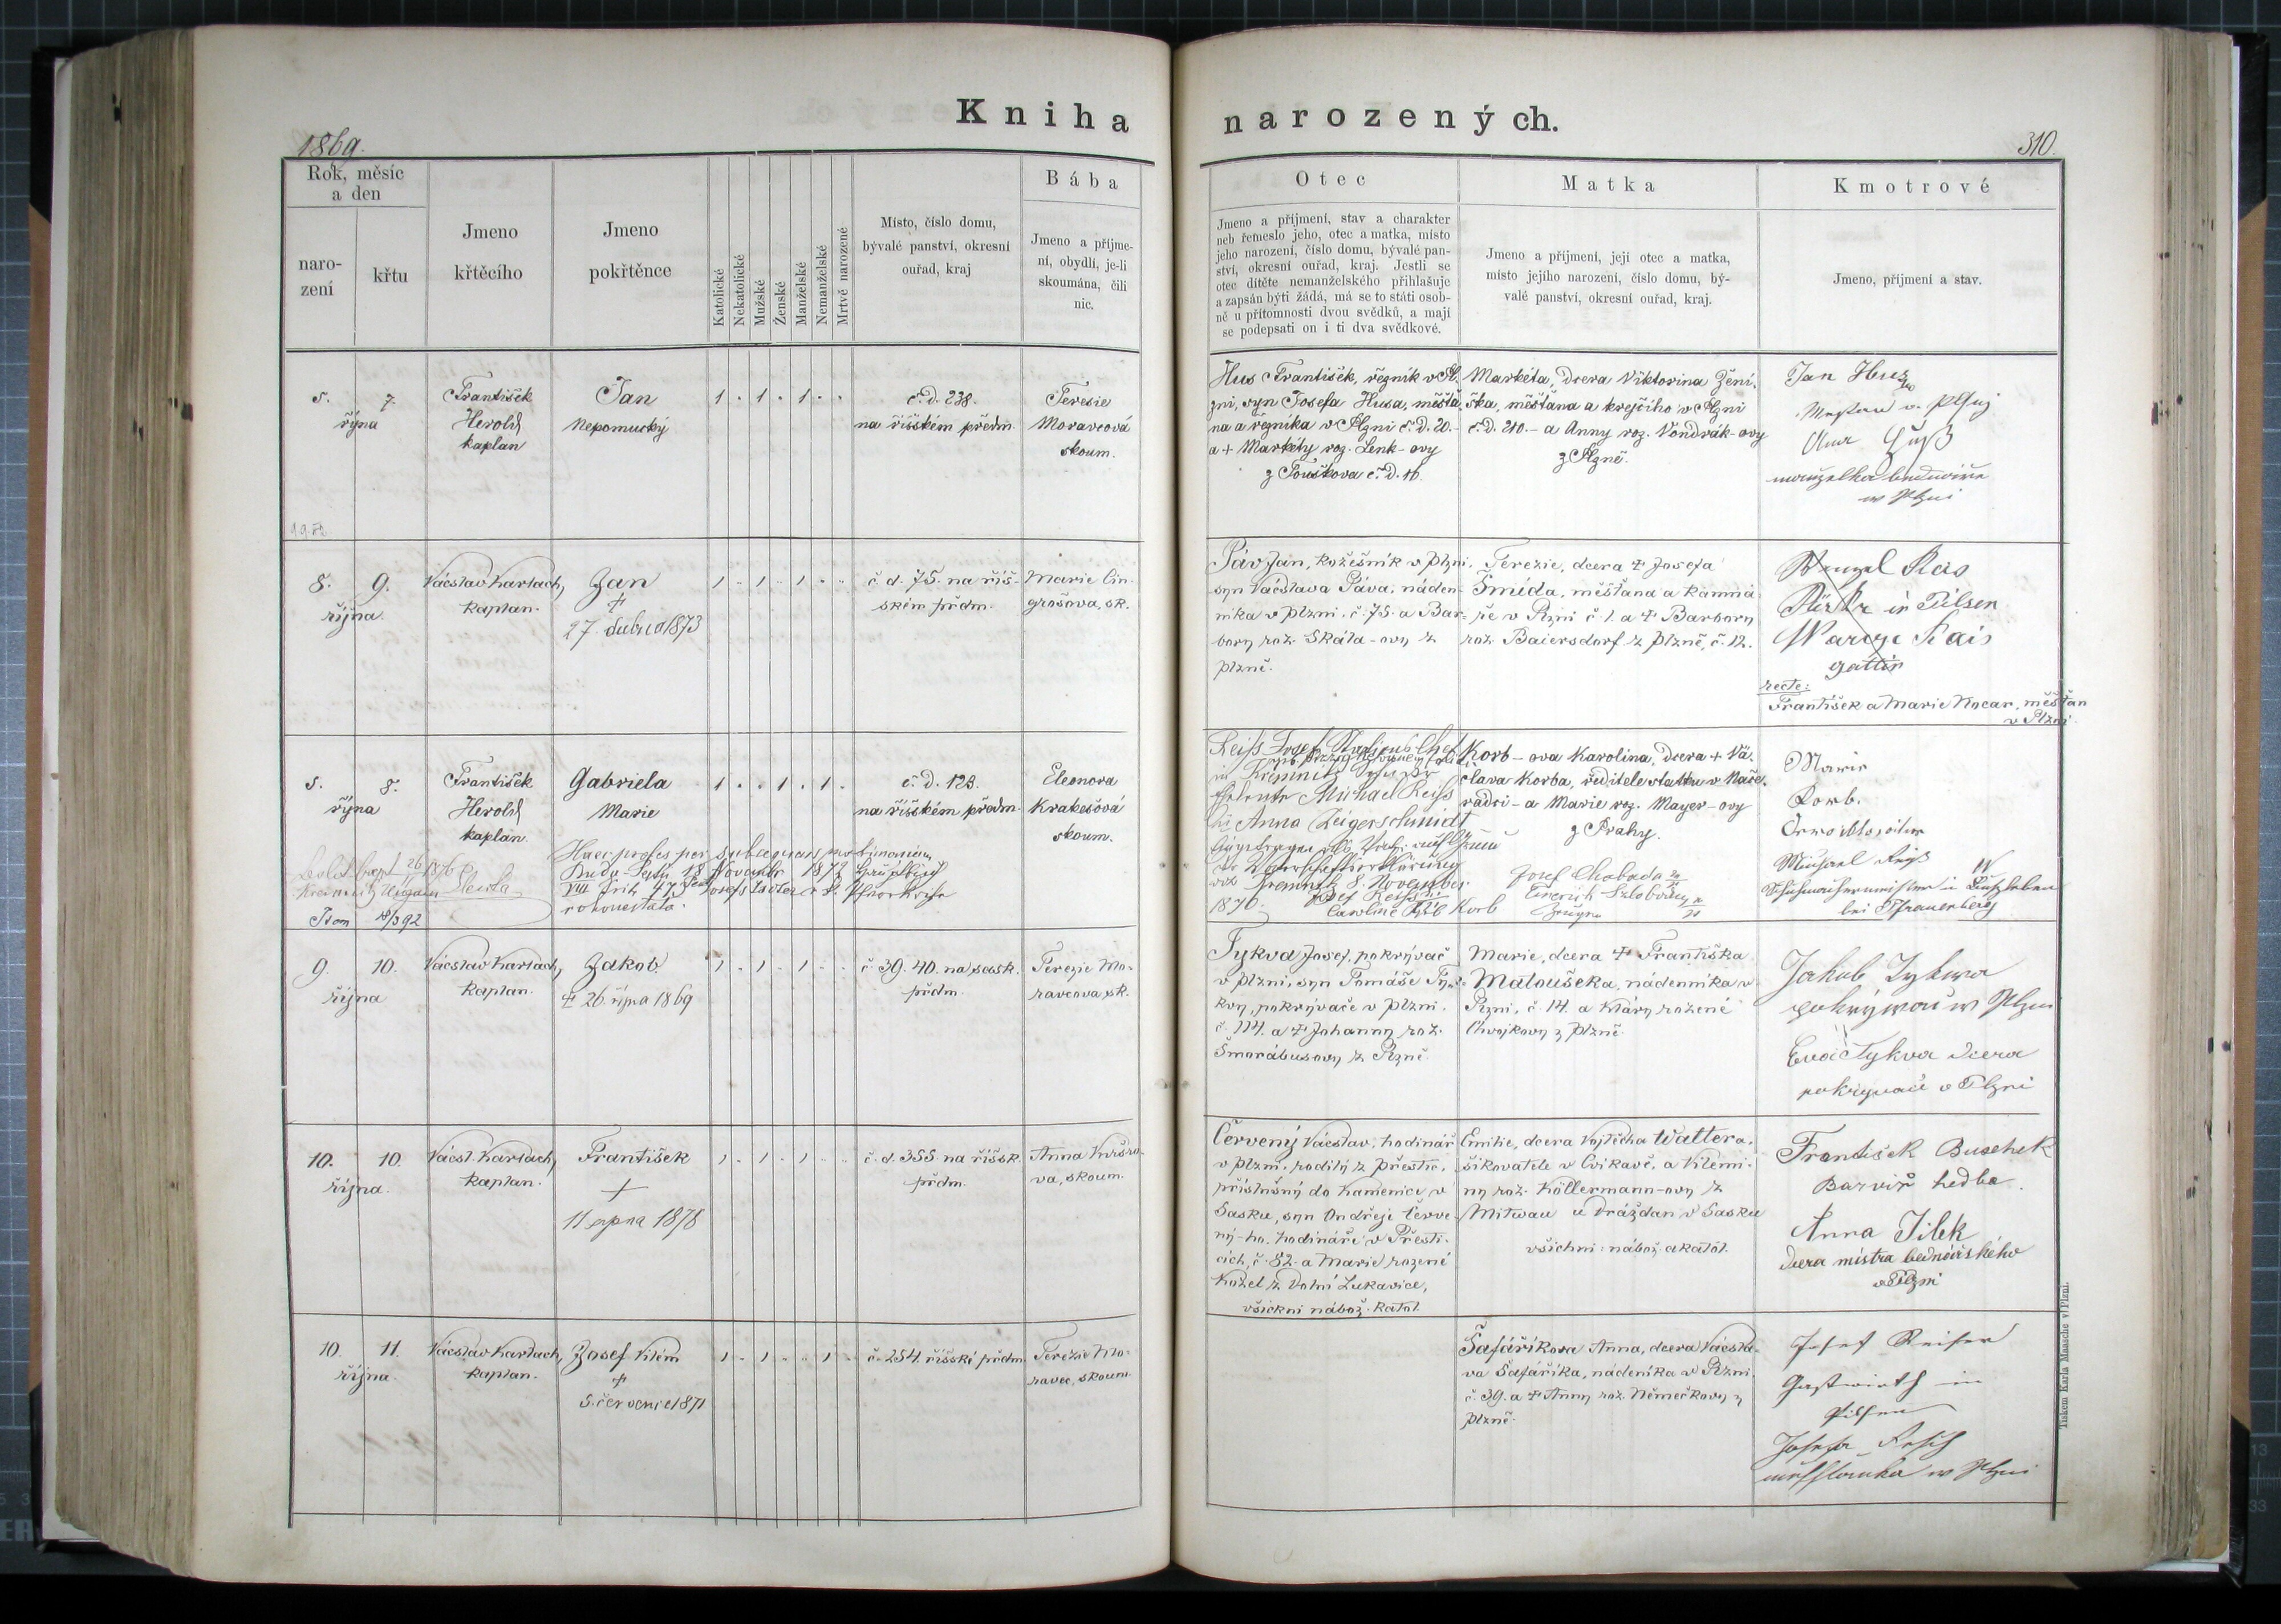 Kniha
narozených.
1869.
310.
Rok, měsíc
a den
naro-
zení
křtu
Jmeno
křtěcího
Jmeno
pokřtěnce
Katolické
Nekatolické
Mužské
Ženské
Manželské
Nemanželské
Mrtvě narozené
Místo, číslo domu,
bývalé panství, okresní
ouřad, kraj
Bába
Jmeno a příjme-
ní, obydlí, je-li
skoumána, čili
nic.
Otec
Jmeno a příjmení, stav a charakter
neb řemeslo jeho, otec a matka, místo
jeho narození, číslo domu, bývalé pan-
ství, okresní ouřad, kraj. Jestli se
otec dítěte nemanželského přihlašuje
a zapsán býti žádá, má se to státi osob-
ně u přítomnosti dvou svědků, a mají
se podepsati on i ti dva svědkové.
Matka
Jmeno a příjmení, její otec a matka,
místo jejího narození, číslo domu, bý-
valé panství, okresní ouřad, kraj.
Kmotrové
Jmeno, příjmení a stav.
5. 7.
října
František
Herold
kaplan
Jan
Nepomucký
1 . 1 . 1 . .
č. d. 238.
na říšském předm.
Teresie
Moravcová
skoum.
Hus František, řezník v Pl-
zni, syn Josefa Husa, měšťa-
na a řezníka v Plzni č. d. 20.-
a + Markéty roz. Lenk-ovy
z Touškova č. d. 16.
Markéta, dcera Viktorina Ženi-
ška, měšťana a krejčího v Plzni
č. d. 210.- a Anny roz. Vondrák-ovy
z Plzně.
Jan Hus
v Plzni
8. 9.
října.
Vácslav Karlach,
kaplan.
Jan
+
27. dubna 1873
1 . 1 . 1 . .
č. d. 75. na říš-
ském přdm.
Marie Cin-
grošova, sk.
Páv Jan, kožešník v Plzni,
syn Vácslava Páva, náden-
níka v Plzni. č. 75. a Bar-
bory rož. Skála-ovy z
Plzně.
Terezie, dcera + Josefa
Šmída, měšťana a kamna-
ře v Plzni č 1. a + Barbory
rož. Baiersdorf z Plzně, č. 12.
in Pilsen
gattin
recte:
František a Marie Kocar, měšťan
v Plzni.
5. 8.
října
František
Herold
kaplan.
Gabriela
Marie
1 . . 1 . 1 .
č. d. 128.
na říšském předm.
Eleonora
Krakešová
skoum.
Josef
Michael Reiss
Anna Zeigerschmidt
8. November
1876.
Korb-ova Karolina, dcera + Vá-
člava Korba, ředitele statku v Nače-
radci - a Marie roz. Mayer-ovy
z Prahy.
Josef Chobada
Marie
Korb.
bei Frauenberg
9. 10.
října
Vácslav Karlach,
kaplan.
Jakob
+ 26. října 1869
1 . 1 . 1 . .
č 39. 40. na sask.
přdm.
Terezie Mo-
ravcova sk.
Tykva Josef, pokrývač
v Plzni, syn Tomáše Ty-
kvy, pokrývače v Plzni.
č. 114. a + Johanny rož.
Šmorábusovy z Plzně.
Marie, dcera + Františka
Matouška, nádenníka v
Plzni, č. 14. a Kláry rožené
Chvojkovy z Plzně.
Jakub Tykwa
pokrýwač w Plzni
Eva Tykva dcera
pokrývače v Plzni
10. 10.
října.
Vácsl. Karlach,
kaplan.
František
+
11 srpna 1878
1 . 1 . 1 . .
č. d. 355 na říšsk.
přdm.
va, skoum.
Červený Vácslav, hodinář
v Plzni, rodilý z Přeštic,
příslušný do Kamenice v
Sasku, syn Ondřeje Červe-
ný-ho, hodináře v Přešti-
cích, č. 82. a Marie rozené
Kožel z Dolní Lukavice,
všickni nábož. katol.
Emilie, dcera Vojtěcha Wattera,
šikovatele v Cvikavě, a Vilemí-
ny rož. Köllermann-ovy z
Mitwau u Drážďan v Sasku
všichni nábož. akatol.
František Buschek
Barvíř hedba
Anna Jílek
dcera mistra bednářského
v Plzni
10. 11.
října
Vácslav Karlach,
kaplan.
Josef Vilém
+
5. července 1871
1 . 1 . . 1 .
č. 254. říšské přdm.
Terezie Mo-
ravec, skoum.
Šafaříkova Anna, dcera Vácsla-
va Šafaříka, nádeníka v Plzni,
č. 39. a + Anny rož. Němečkovy z
Plzně.
Josef Reiser
Gastwirth in
Pilsen
Josefa
w Plzni
Tiskem Karla Maasche v Plzni.